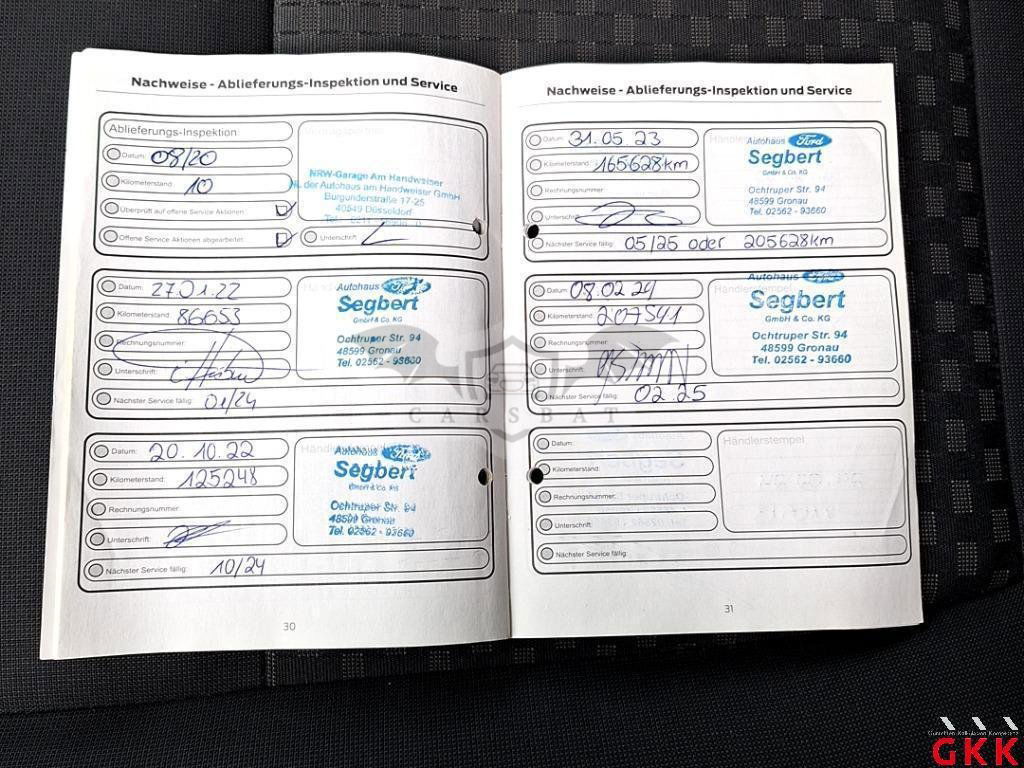 Nachweise - Ablieferungs-Inspektion und Service
Ablieferungs-Inspektion
Datum: 08/20
Kilometerstand: 10
Überprüft auf offene Service Aktionen
Offene Service Aktionen abgearbeitet
Unterschrift
NRW-Garage Am Handweiser
der Autohaus am Handweiser GmbH
Burgunderstraße 17-25
40549 Düsseldorf
Datum: 27.01.22
Kilometerstand: 86653
Rechnungsnummer:
Unterschrift:
Nächster Service fällig: 01/24
Autohaus Ford
Segbert
GmbH & Co. KG
Ochtruper Str. 94
48599 Gronau
Tel. 02562 - 93660
Datum: 20.10.22
Kilometerstand: 125248
Rechnungsnummer:
Unterschrift:
Nächster Service fällig: 10/24
Autohaus Ford
Segbert
GmbH & Co. KG
Ochtruper Str. 94
48599 Gronau
Tel. 02562 - 93660
30
Nachweise - Ablieferungs-Inspektion und Service
Datum: 31.05.23
Kilometerstand: 165628km
Rechnungsnummer:
Unterschrift:
Nächster Service fällig: 05/25 oder 205628km
Autohaus Ford
Segbert
GmbH & Co. KG
Ochtruper Str. 94
48599 Gronau
Tel. 02562 - 93660
Datum: 08.02.24
Kilometerstand: 207541
Rechnungsnummer:
Unterschrift:
Nächster Service fällig: 02.25
Händlerstempel
Autohaus Ford
Segbert
GmbH & Co. KG
Ochtruper Str. 94
48599 Gronau
Tel. 02562 - 93660
Datum:
Kilometerstand:
Rechnungsnummer:
Unterschrift:
Nächster Service fällig:
Händlerstempel
31
CARSBAT
GKK